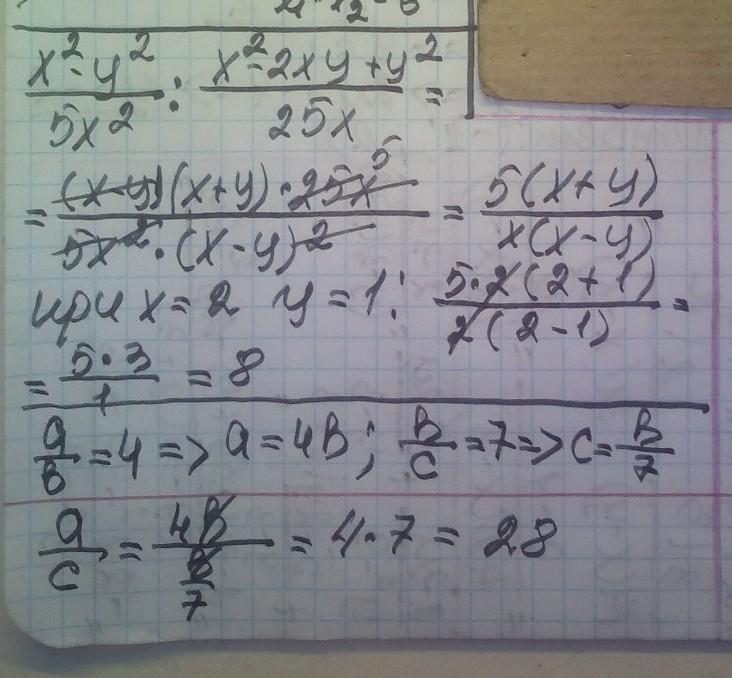 x²-y²/5x² : x²-2xy+y²/25x =
= (x-y)(x+y)·25x 5/5x²·(x-y)² = 5(x+y)/x(x-y)
при x=2 y=1: 5·2(2+1)/2(2-1) =
= 5·3/1 = 8
a/b=4 => a=4b; b/c=7=> c=b/7
a/c = 4b/b/7 = 4·7 = 28